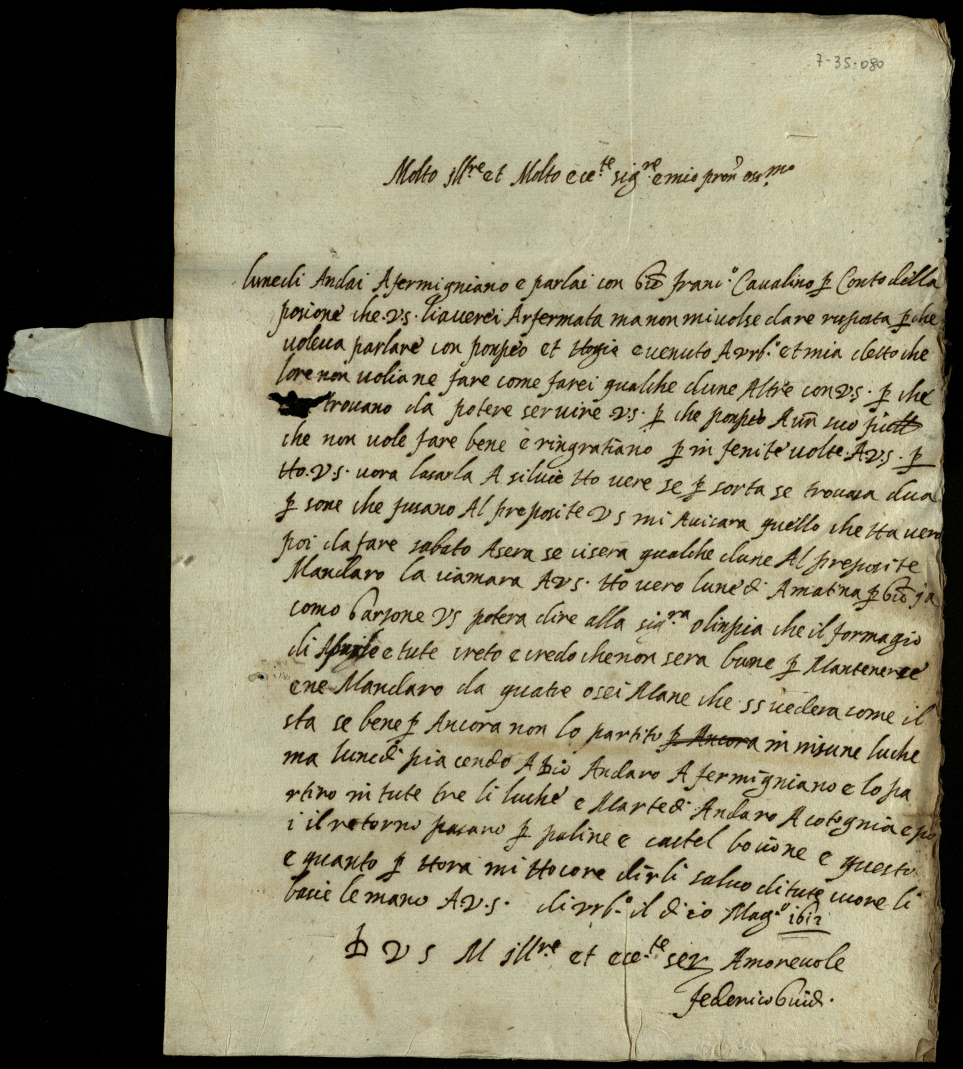 7-35-080
Molto jll.re et Molto ece.te sig.re e mio pron oss.mo
lunedi Andai Afermigniano e parlai con Gio franc.o Caualino p Conto della
posione che v.s. liauerei Arfermata ma non mi volse dare risposta p che
voleua parlare con ponpeo et e venuto A vrb.o et mia detto che
lore non voliane fare come farei qualche dune Altre con v.s. p che
trouano da potere seruire v.s. p che ponpeo A un suo
che non vole fare bene e ringratiano p in fenite volte A v.s. p
tto v.s. vora lasarla A siluie tto vere se p sorta se trouara dua
p sone che fusano Al preposite v s mi Auisara quello che tta vero
poi da fare sabato Asera se visera qualche dune Al preposite
Mandaro la ciamara A v s. tto vero lunedi Amatina p Gio ja
como Garzone v s potera dire alla sig.ra olinpia che il formagio
di e tute creto e credo che non sera bune p Mantenerce
ene Mandaro da quatre o sei Mane che ss vedera come il
sta se bene p Ancora non lo partito p Ancora in nisune luche
ma lunedi piacendo A Dio Andaro A fermigniano e lo pa
rtiro in tute tre li luche e Martedi Andaro A cotognia e po
i il retorno pasaro p paline e castel bocione e questo
e quanto p ttora mi ttocore dirli salvo di tute cuore li
bacie le mano A v.s. di vrb.o il di 10 Mag.o 1612
D V S M jll.re et ece.te ser Amoreuole
federico Guid.